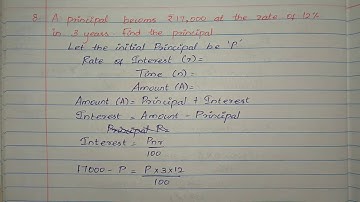 8. A principal becoms ₹17,000 at the rate of 12%
in 3 years. Find the principal
Let the initial Principal be 'P'
Rate of Interest (r)=
Time (n)=
Amount (A)=
Amount (A) = Principal + Interest
Interest = Amount - Principal
Principal P=
Interest = Pnr/100
17000 - P = P x 3 x 12/100